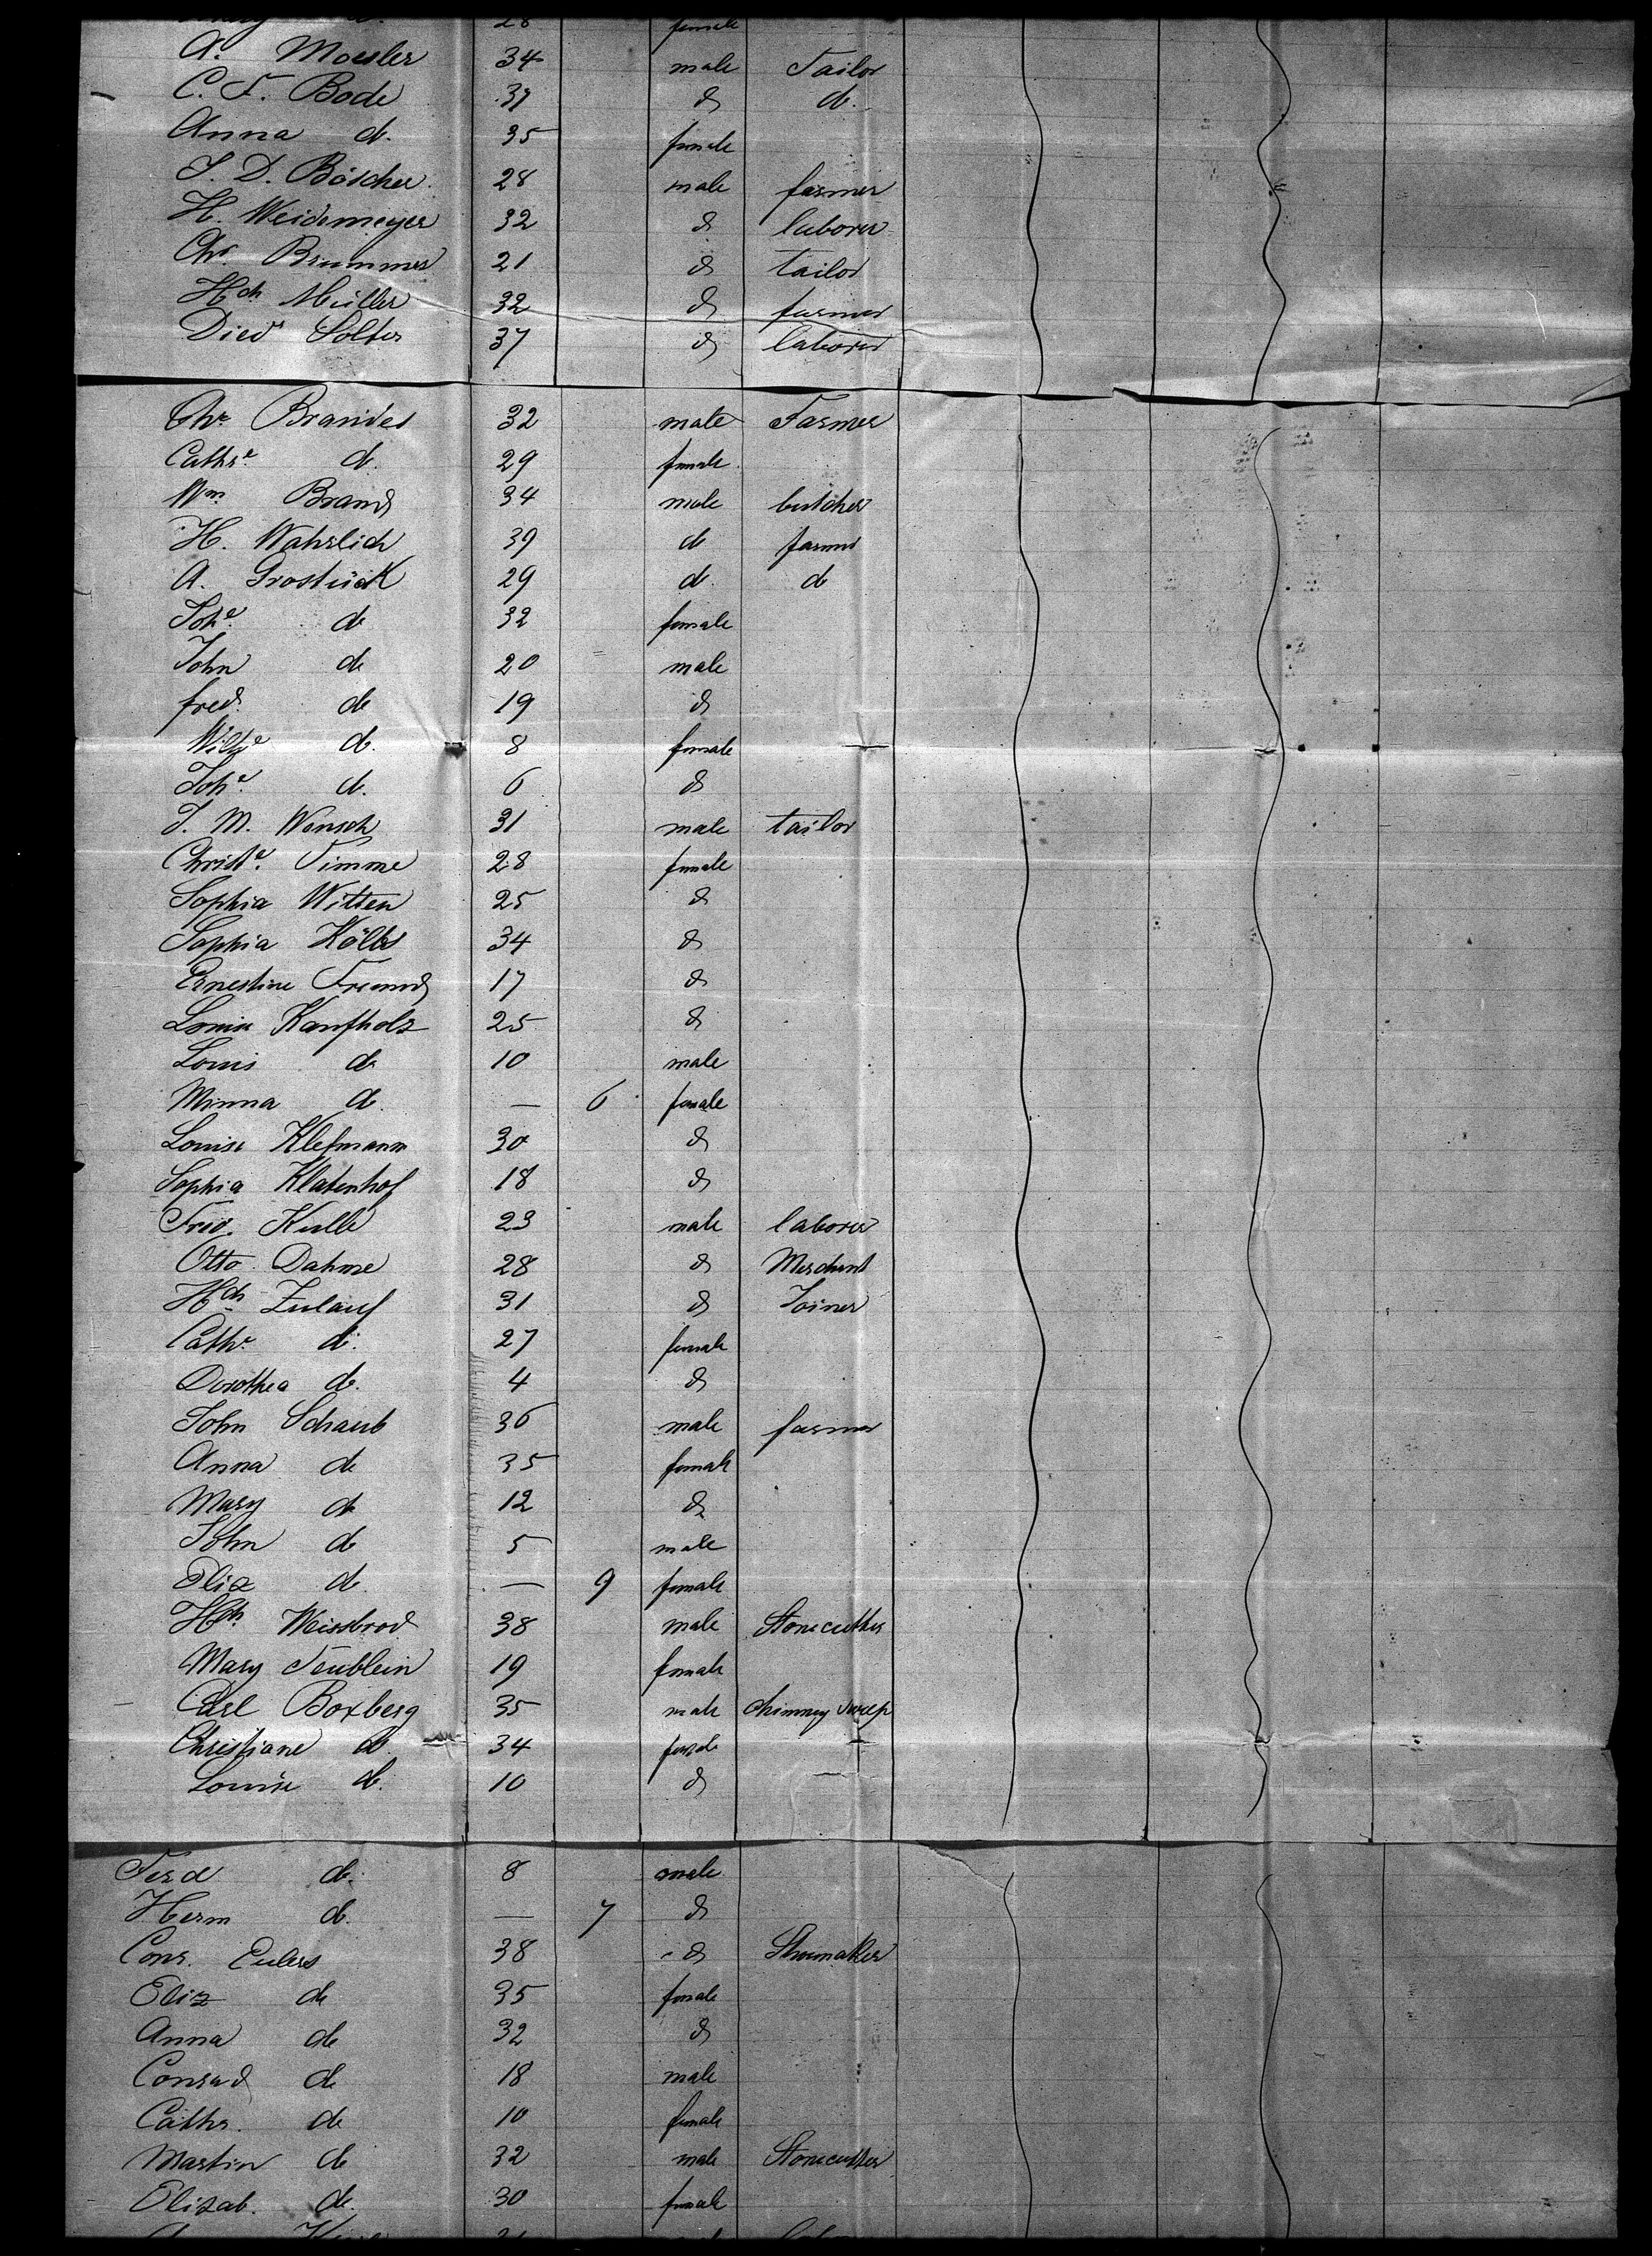 28 female
A. Moesler 34 male Tailor
C. F. Bode 37 do do.
Anna do. 35 female
J. D. Böscher 28 male farmer
H. Weidemeyer 32 do laborer
Chr. Brummer 21 do tailor
Hch Müller 32 do farmer
Died Solter 37 do laborer
Chr. Brandes 32 male Farmer
Cathre. do. 29 female
Wm. Brand 34 male butcher
H. Wahrlich 39 do farmer
A. Grostück 29 do. do
Johe. do 32 female
John do 20 male
fred. do 19 do
Wilhe do. 8 female
Johe. do. 6 do
J. M. Wensch 31 male tailor
Christe. Timme 28 female
Sophia Witten 25 do
Sophia Kölbs 34 do
Ernestine Freund 17 do
Louise Kaufholz 25 do
Louis do 10 male
Minna do. — 6 female
Louise Klefmann 30 do
Sophia Klatenhof 18 do
Fred. Kulle 23 male laborer
Otto Dahme 28 do Merchant
Hch Zulauf 31 do Joiner
Cathe. do. 27 female
Dorothea do. 4 do
John Schaub 36 male farmer
Anna do 35 female
Mary do 12 do
John do 5 male
Eliz do. — 9 female
Hch. Weissbrod 38 male Stonecutter
Mary Teublein 19 female
Carl Boxberg 35 male chimney sweep
Christiane do 34 female
Louise do. 10 do
Ferd do. 8 male
Herm do. — 7 do
Conr. Eulers 38 do Shumaker
Eliz do 35 female
Anna do 32 do
Conrad do 18 male
Cathr. do 10 female
Martin do 32 male Stonecutter
Elisab. do. 30 female